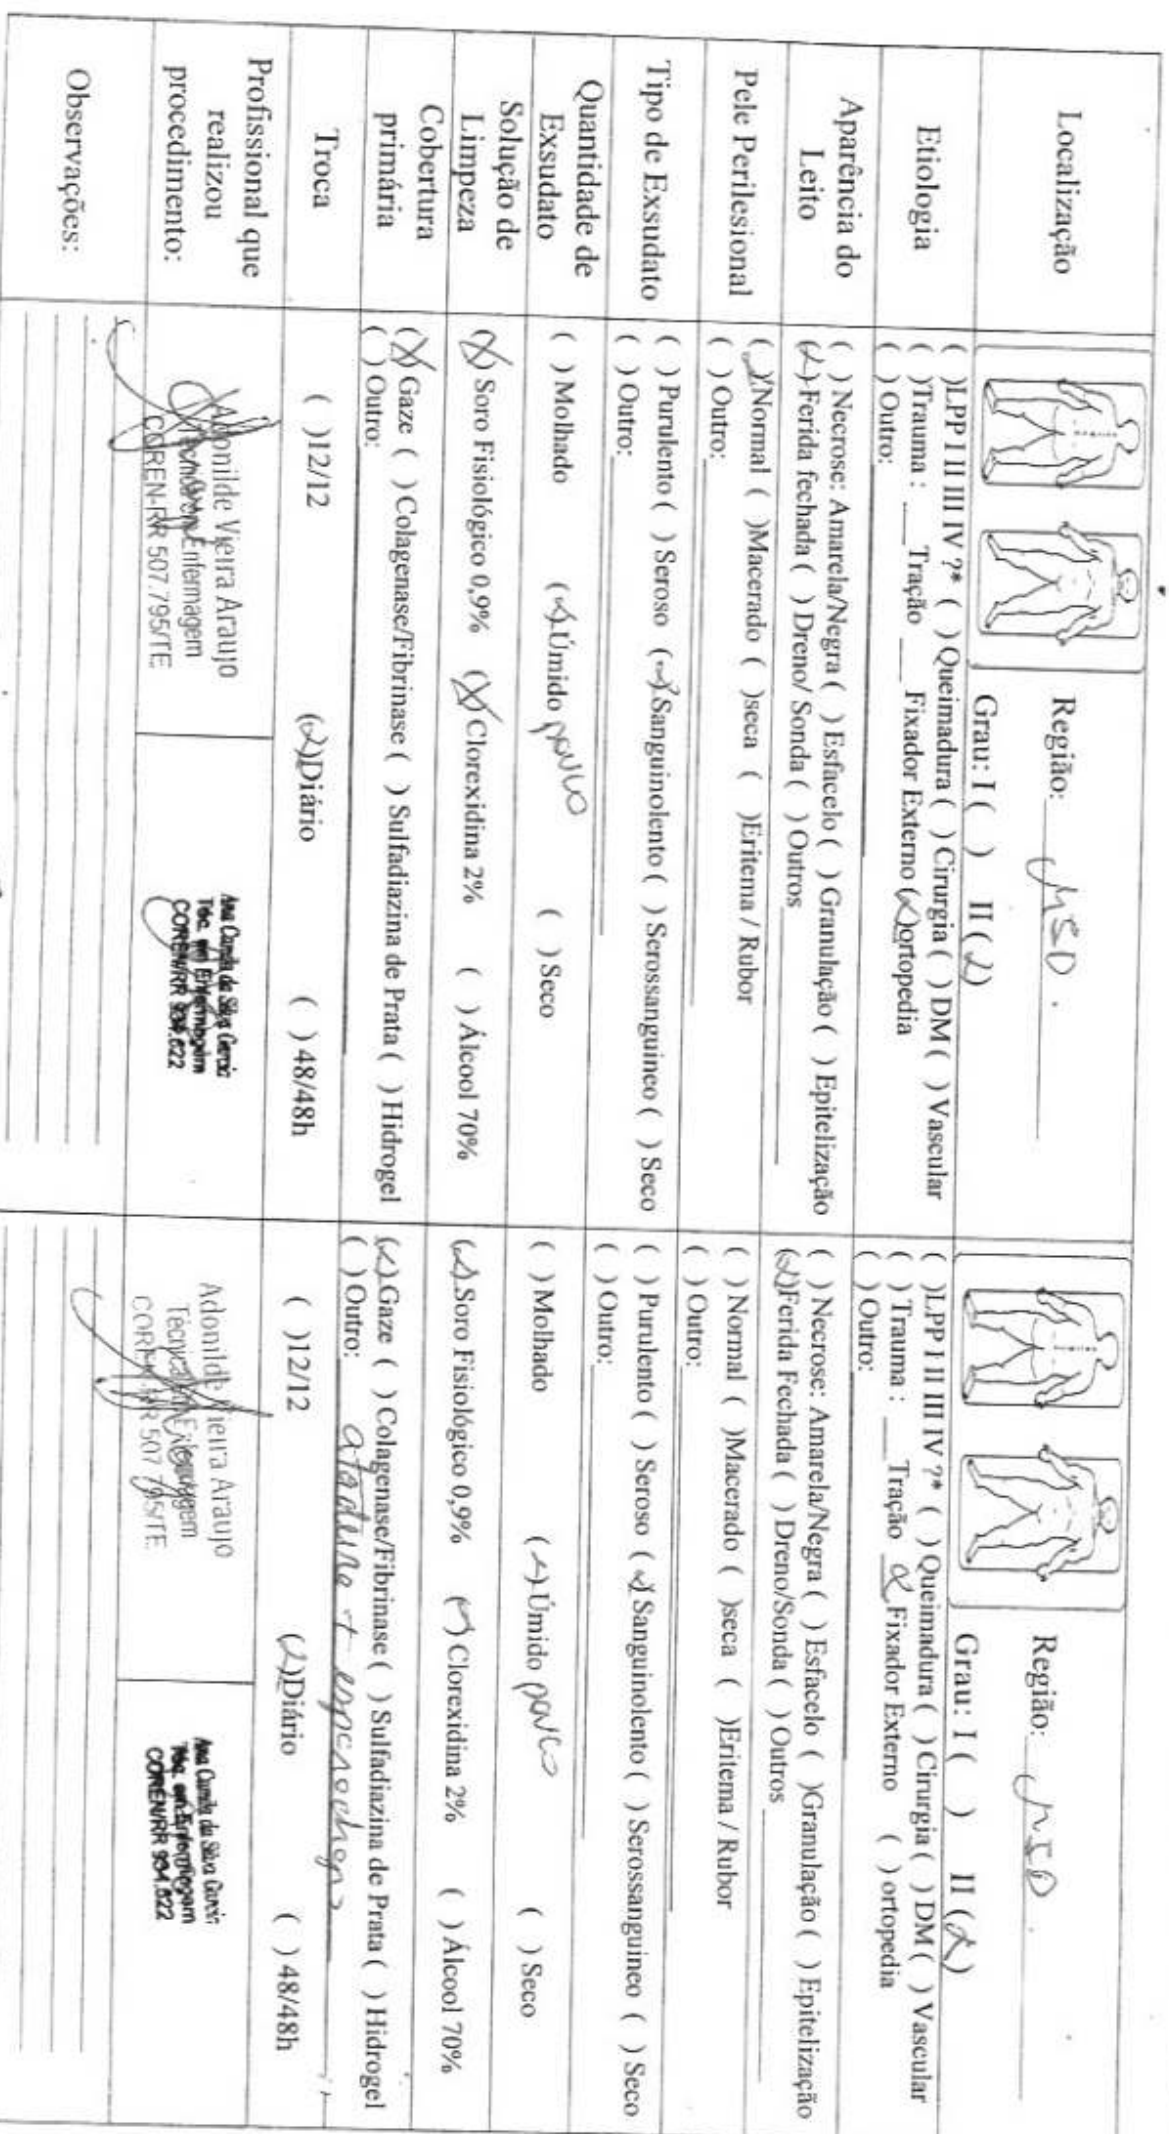 Localização
Região: MSD.
Grau: I ( ) II (x)
Região: MSD
Grau: I ( ) II (x)
Etiologia
( )LPP I II III IV ?* ( )Queimadura ( )Cirurgia ( ) DM ( ) Vascular
( )Trauma : ___Tração ___ Fixador Externo (x)ortopedia
( ) Outro:
( )LPP I II III IV ?* ( ) Queimadura ( )Cirurgia ( ) DM ( ) Vascular
( ) Trauma : ___Tração _x_Fixador Externo ( ) ortopedia
( )Outro:
Aparência do
Leito
( ) Necrose: Amarela/Negra ( ) Esfacelo ( ) Granulação ( ) Epitelização
(x) Ferida fechada ( ) Dreno/ Sonda ( ) Outros
( ) Necrose: Amarela/Negra ( ) Esfacelo ( )Granulação ( ) Epitelização
(x)Ferida Fechada ( ) Dreno/Sonda ( ) Outros
Pele Perilesional
(x)Normal ( )Macerado ( )seca ( )Eritema / Rubor
( ) Outro:
( ) Normal ( )Macerado ( )seca ( )Eritema / Rubor
( ) Outro:
Tipo de Exsudato
( ) Purulento ( ) Seroso (x)Sanguinolento ( ) Serossanguineo ( ) Seco
( ) Outro:
( ) Purulento ( ) Seroso (x) Sanguinolento ( ) Serossanguineo ( ) Seco
( ) Outro:
Quantidade de
Exsudato
( ) Molhado (x)Úmido pouco ( ) Seco
( ) Molhado (x)Úmido pouco ( ) Seco
Solução de
Limpeza
(X) Soro Fisiológico 0,9% (X) Clorexidina 2% ( ) Álcool 70%
(x) Soro Fisiológico 0,9% (x) Clorexidina 2% ( ) Álcool 70%
Cobertura
primária
(X) Gaze ( ) Colagenase/Fibrinase ( ) Sulfadiazina de Prata ( ) Hidrogel
( ) Outro:
(x)Gaze ( ) Colagenase/Fibrinase ( ) Sulfadiazina de Prata ( ) Hidrogel
( ) Outro: atadura +
Troca
( )12/12 (x)Diário ( ) 48/48h
( )12/12 (x)Diário ( ) 48/48h
Profissional que
realizou
procedimento:
Adonilde Vieira Araujo
Técnica em Enfermagem
COREN-RR 507.795/TE
Ana Camila da Silva Garcia
Téc. em Enfermagem
COREN/RR 934.622
Adonilde Vieira Araujo
Técnica em Enfermagem
COREN-RR 507.795/TE
Ana Camila da Silva Garcia
Téc. em Enfermagem
COREN/RR 934.622
Observações: